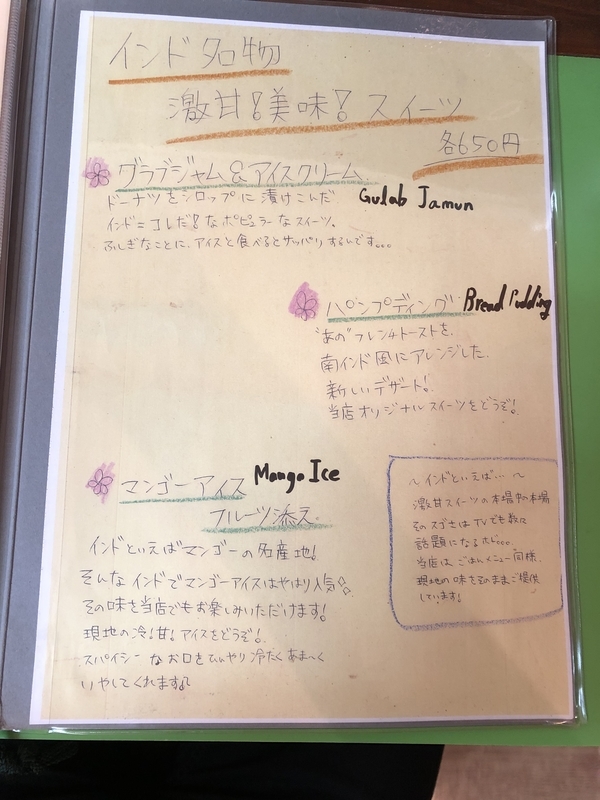 インド名物
激甘!美味!スイーツ
各650円
グラブジャム&アイスクリーム
Gulab Jamun
ドーナツをシロップに漬けこんだ
インド=コレだ!なポピュラーなスイーツ。
ふしぎなことに、アイスと食べるとサッパリするんです。。。
パンプディング
Bread Pudding
"あの"フレンチトーストを、
南インド風にアレンジした、
新しいデザート!
当店オリジナルスイーツをどうぞ!
マンゴーアイス
Mango Ice
フルーツ添え
インドといえばマンゴーの名産地!
そんなインドでマンゴーアイスはやはり人気☆
その味を当店でもお楽しみいただけます!
現地の冷!甘!アイスをどうぞ!
スパイシーなお口をひんやり冷たくあま〜く
いやしてくれます♪
〜インドといえば…〜
激甘スイーツの本場中の本場
そのスゴさはTVでも数々
話題になるホド。。。
当店は、ごはんメニュー同様、
現地の味をそのままご提供
しています!